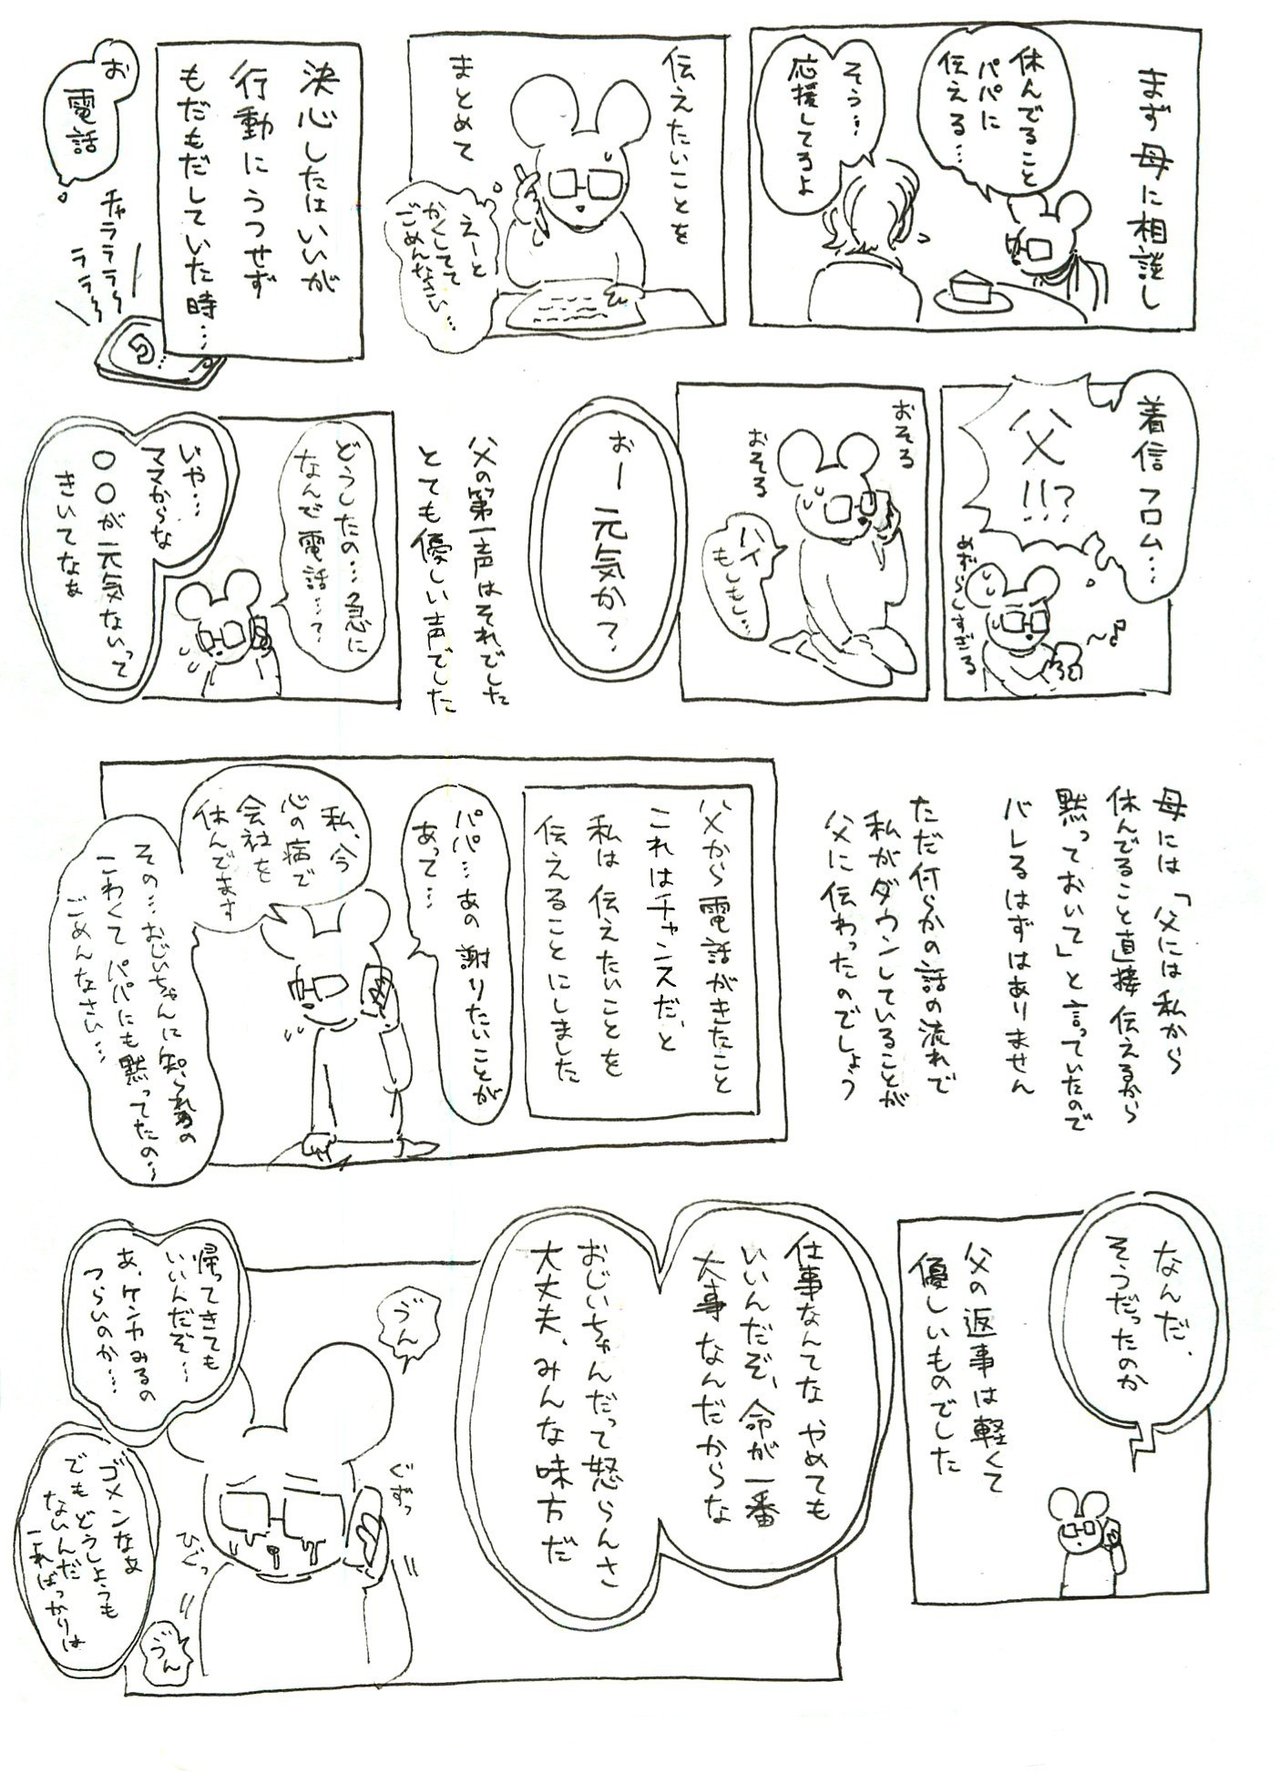 まず母に相談し
休んでること
パパに
伝える…
そう…
応援してるよ
伝えたいことを
まとめて
えーと
かくしてて
ごめんなさい…
決心したはいいが
行動にうつせず
もだもだしていた時…
お
電話
チャラララ〜
ララ〜
着信フロム…
父!!?
めずらしすぎる
おそる
おそる
ハイ
もしもし…
おー元気か?
父の第一声はそれでした
とても優しい声でした
どうしたの…急に
なんで電話…?
いや…
ママからな
〇〇が元気ないって
きいてなぁ
母には「父には私から
休んでること直接伝えるから
黙っておいて」と言っていたので
バレるはずはありません
ただ何らかの話の流れで
私がダウンしていることが
父に伝わったのでしょう
父から電話がきたこと
これはチャンスだ、と
私は伝えたいことを
伝えることにしました
パパ…あの謝りたいことが
あって…
私、今
心の病で
会社を
休んでます
その…おじいちゃんに知られるの
こわくてパパにも黙ってたの…
ごめんなさい…
なんだ、
そうだったのか
父の返事は軽くて
優しいものでした
仕事なんてな やめても
いいんだぞ、命が一番
大事なんだからな
おじいちゃんだって怒らんさ
大丈夫、みんな味方だ
ゔん
帰ってきても
いいんだぞ…
あ、ケンカみるの
つらいのか…
ぐずっ
ひぐっ
ゴメンなぁ
でもどうしようも
ないんだ
こればっかりは
ゔん